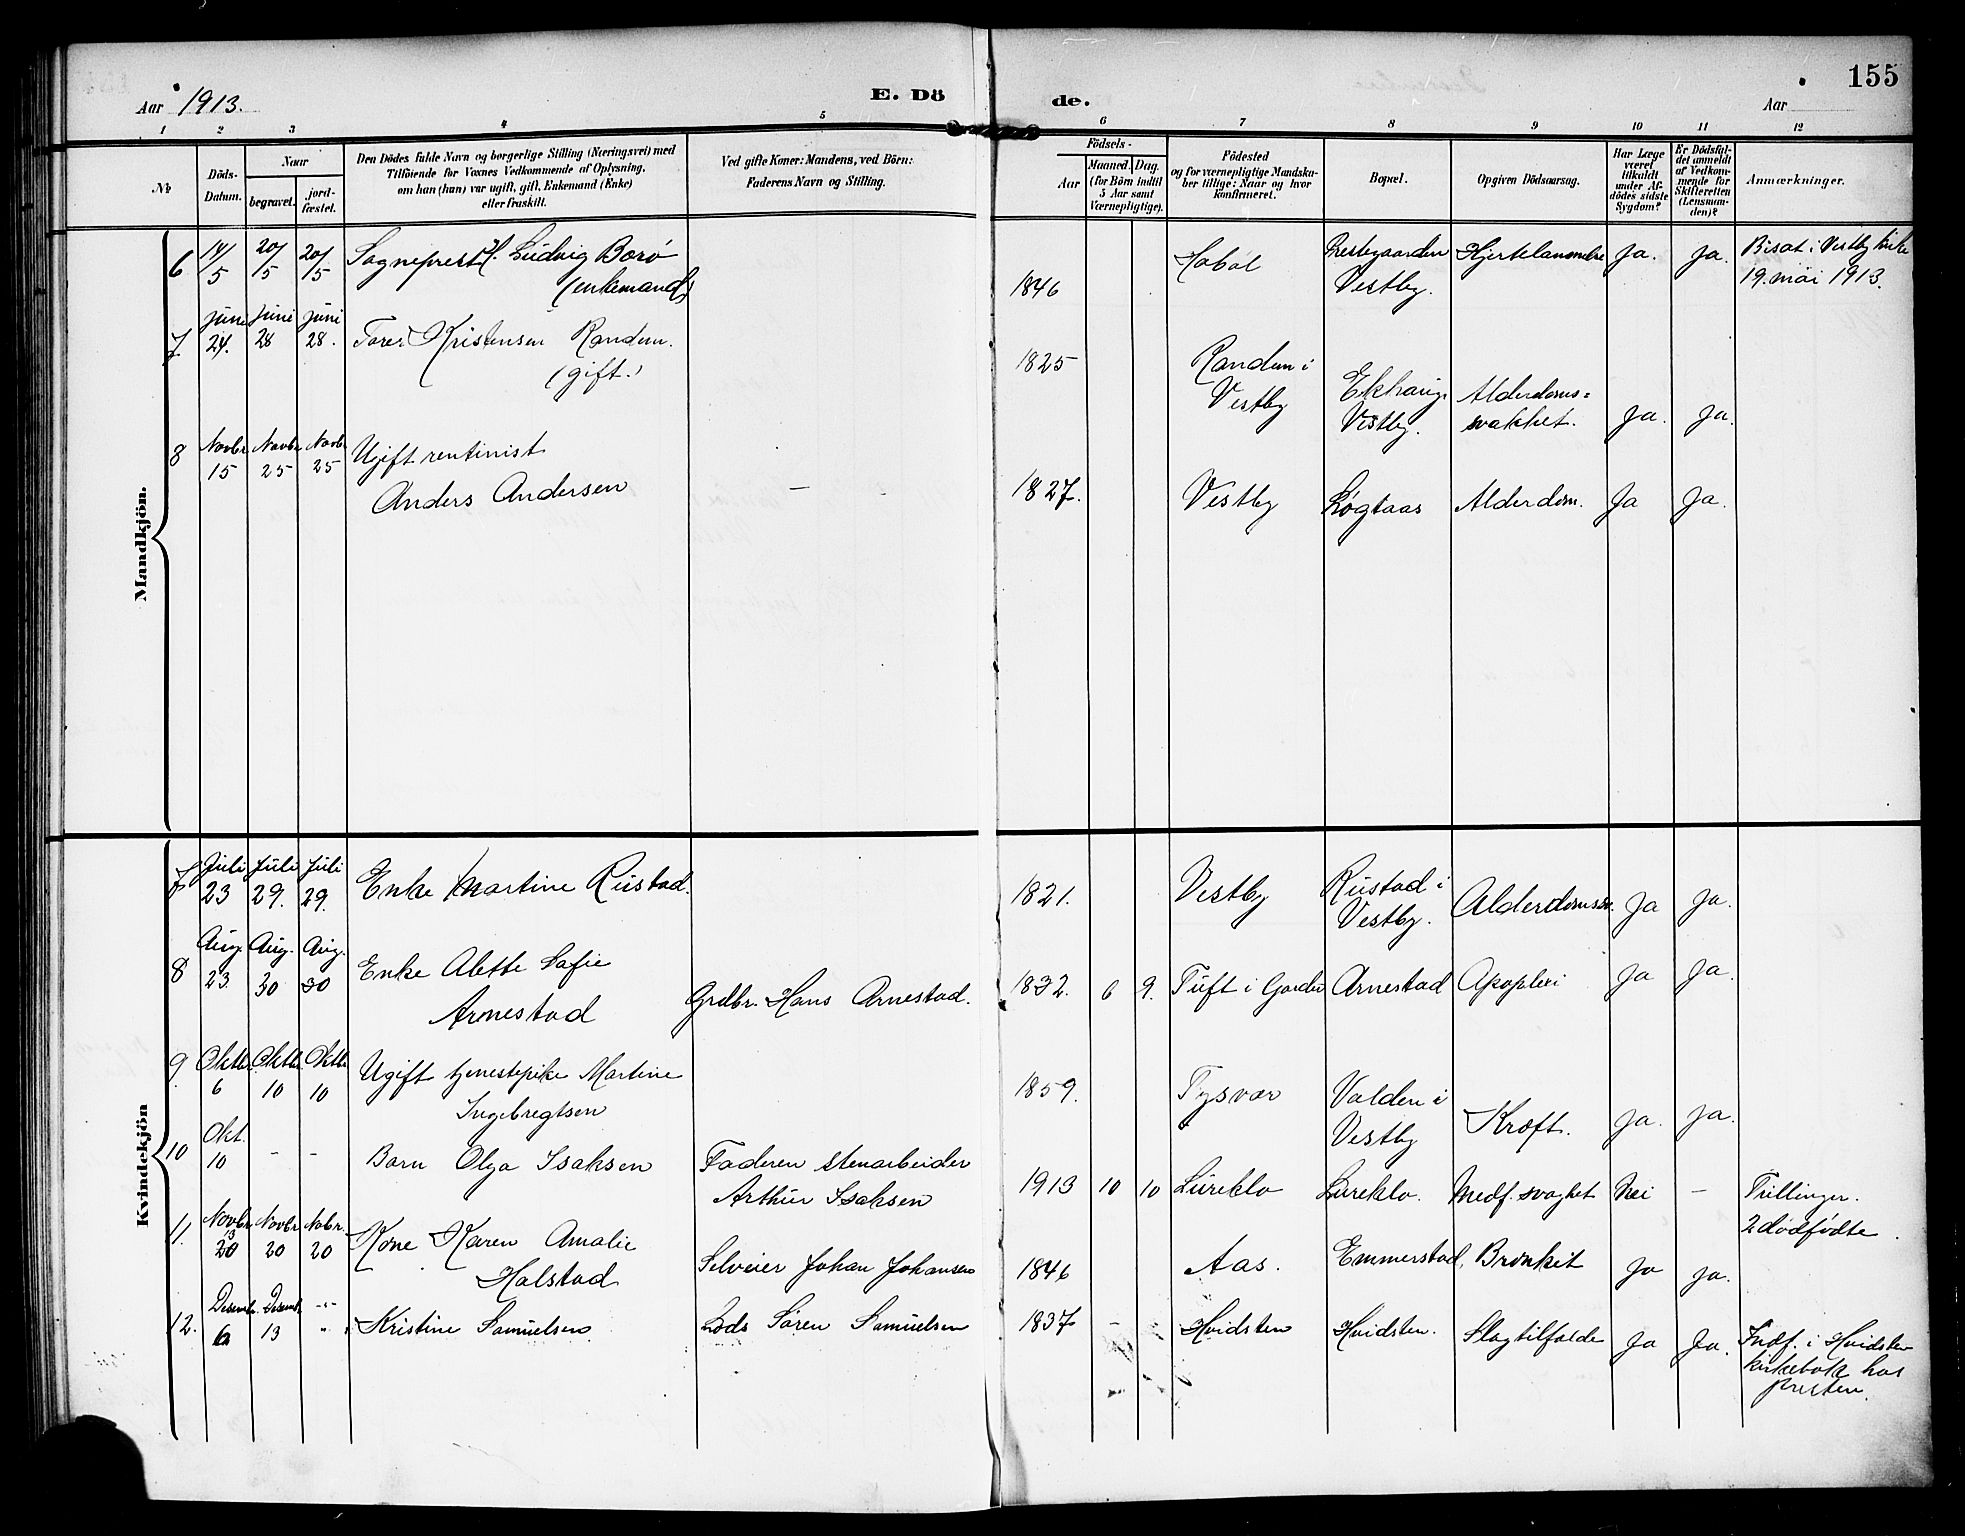 Aar 1913.
E. Dö
de.
155
Aar
1 2 3 4 5 6 7 8 9 10 11 12
No
Döds-
Datum.
Naar
begravet.
jord-
fæstet.
Den Dödes fulde Navn og borgerlige Stilling (Næringsvei) med
Tilföiende for Voxnes Vedkommende af Oplysning,
om han (hun) var ugift, gift, Enkemand (Enke)
eller fraskilt.
Ved gifte Koner: Mandens, ved Börn:
Faderens Navn og Stilling.
Födsels-
Aar
Maaned. Dag.
(for Börn indtil
5 Aar samt
Værnepligtige).
Födested
og for værnepligtige Mandska-
ber tillige: Naar og hvor
konfirmeret.
Bopæl.
Opgiven Dödsaarsag.
Har Læge
været
tilkaldt
under Af-
dödes sidste
Sygdom?
Er Dödsfal-
det anmeldt
af Vedkom-
mende for
Skifteretten
(Lensman-
den)?
Anmærkninger.
Mandkjön.
6 14/5 20/5 20/5 Sogneprest H. Ludvig Borø
(enkemand)
1846 Hobøl Vestby. Hjertelammelse Ja. Ja. Bisat i Vestby kirke
19. mai 1913.
7 Juni 24. Juni 28 Juni 28. Kristensen Randem.
(gift.)
1825 Randem i
Vestby
Ekhaug.
Vestby.
Alderdoms=
svakhet. Ja. Ja.
8 Novbr. 15 Novbr. 25 Novbr. 25 Ugift rentinist
Anders Andersen
–
1827. Vestby Løgtaas Alderdom. Ja Ja.
Kvindekjön
7 Juli 23 Juli 29. Juli 29. Enke Martine Rustad.
1821. Vestby Rustad i
Vestby. Alderdomssv. Ja Ja.
8 Aug. 23 Aug. 30 Aug. 30 Enke Alette Sofie
Arnestad
Grdbr. Hans Arnestad.
1832. 6 9. Tuft i Garder Arnestad Apoplexi Ja Ja.
9. Oktbr. 6 Oktbr. 10 Oktbr. 10 Ugift tjenestepike Martine
Ingebregtsen
1859. Tysvær Valden i
Vestby Kræft. Ja. Ja.
10 Okt. 10 – – Barn Olga Isaksen
Faderen stenarbeider
Arthur Isaksen
1913 10 10 Lureklo Lureklo. Medf. svaghet Nei – Trillinger.
2 dødfødte.
11. Novbr. 13 20 Novbr. 20 Nobr. 20 Kone Karen Amalie
Halstad
Selveier Johan Johansen
1846 Aas. Emmerstad, Bronkit Ja Ja.
12. Desembr. 6 Desemb. 13 -"- " Kristine Samuelsen
Lods Søren Samuelsen
1837 – Hvidsten Hvidsten. Slagtilfælde Ja Ja. Indf. i Hvidsten
kirkebok hos
presten.